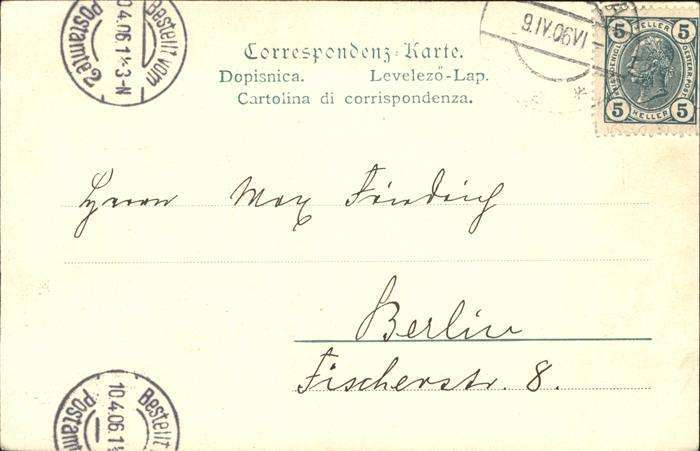 Bestellt vom
Postamte 2
10.4.06.1½-3-N
Correspondenz-Karte.
Dopisnica. Levelező-Lap.
Cartolina di corrispondenza.
9.IV.06
5 HELLER 5
5 HELLER 5
Herrn Max Friedrich
Berlin
Fischerstr. 8.
Bestellt vom
Postamt
10.4.06.1½